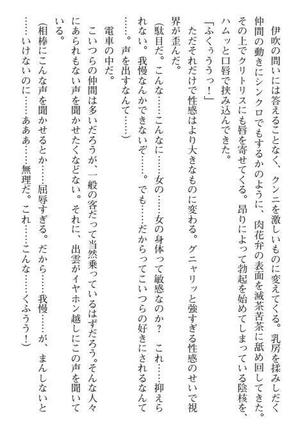 伊吹の問いには答えることなく、クンニを激しいものに変えてくる。乳房を揉みしだく
仲間の動きにシンクロでもするかのように、肉花弁の表面を滅茶苦茶に舐め回してきた。
その上でクリトリスにも唇を寄せてくる。昂りによって勃起を始めてしまっている陰核を、
ハムッと口唇で挟み込んできた。
「ふくぅううっ！」
ただそれだけで性感はより大きなものに変わる。グニャリッと強すぎる性感のせいで視
界が歪んだ。
（駄目だ。……こんなに……女の……女の身体って敏感なのか？　これ……抑えら
れない。我慢なんかできないぞ……。でも……だからってこいつらの好きにされるなんて
……。声を出すなんて……）
電車の中だ。
こいつらの仲間は多いだろうが、一般の客だって当然乗っているはずだろう。そんな人々
にあられもない声を聞かせたくなどない。それに、出雲がイヤホン越しにこの声を聞いて
いる。
（相棒にこんな声を聞かせるとか……屈辱すぎる。だから……我慢……が、まんしないと
……いけないのに……あああ……無理だ。これ……こんな……くふうう！）